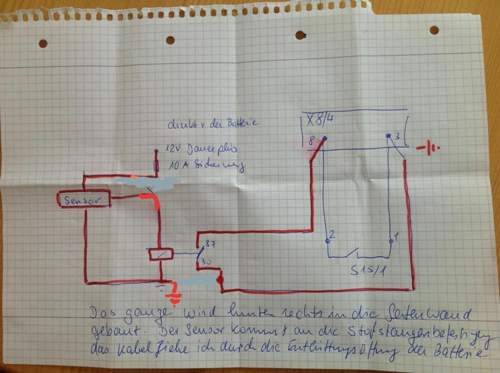 direkt v. der Batterie
12V Dauerplus
10A Sicherung
X8/4
8
3
Sensor
87
30
2
1
S15/1
Das ganze wird hinten rechts in die Seitenwand
gebaut. Der Sensor kommt an die Stoßstangenbefestigung
das Kabel ziehe ich durch die Entlüftungsöffnung der Batterie